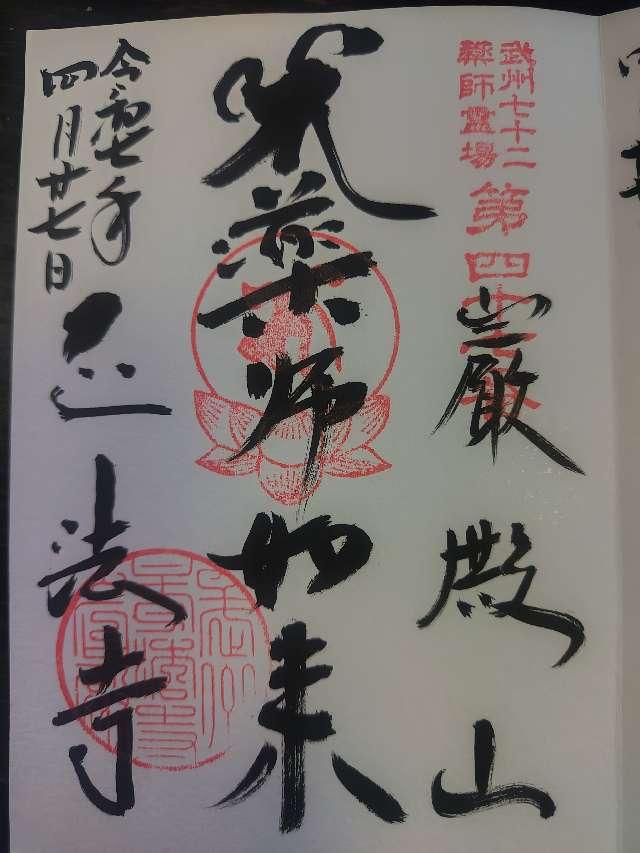 武州七十二
薬師霊場
第四十
巌殿山
薬師如来
令和七年
四月廿七日
正法寺